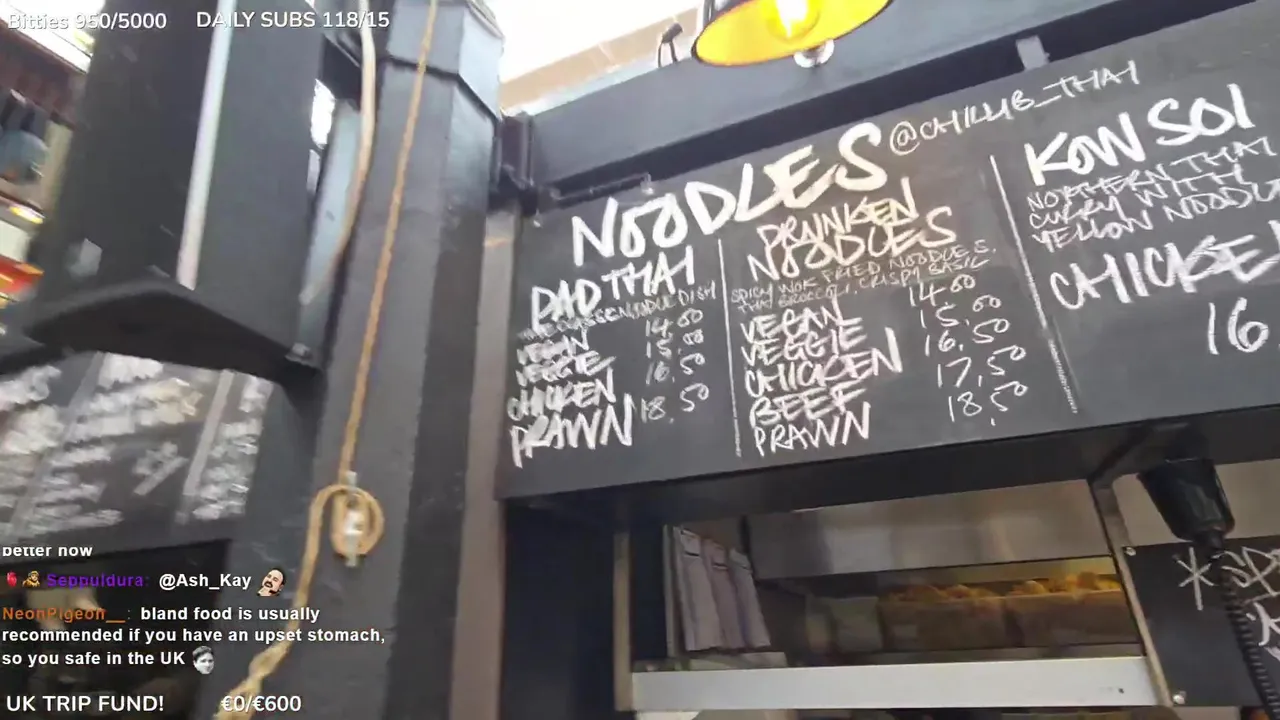 Bitties 950/5000
DAILY SUBS 118/15
NOODLES
@CHILLIB_THAI
PAD THAI
NOODLE DISH
VEGAN 14.00
VEGGIE 15.00
CHICKEN 16.50
PRAWN 18.50
DRUNKEN
NOODLES
SPICY WOK FRIED NOODLES,
THAI BROCCOLI, CRISPY BASIL
VEGAN 14.00
VEGGIE 15.00
CHICKEN 16.50
BEEF 17.50
PRAWN 18.50
KOW SOI
NORTHERN THAI
CURRY WITH
YELLOW NOODL
CHICKEN
16.
better now
Seppuldura: @Ash_Kay
NeonPigeon__: bland food is usually
recommended if you have an upset stomach,
so you safe in the UK
UK TRIP FUND! €0/€600